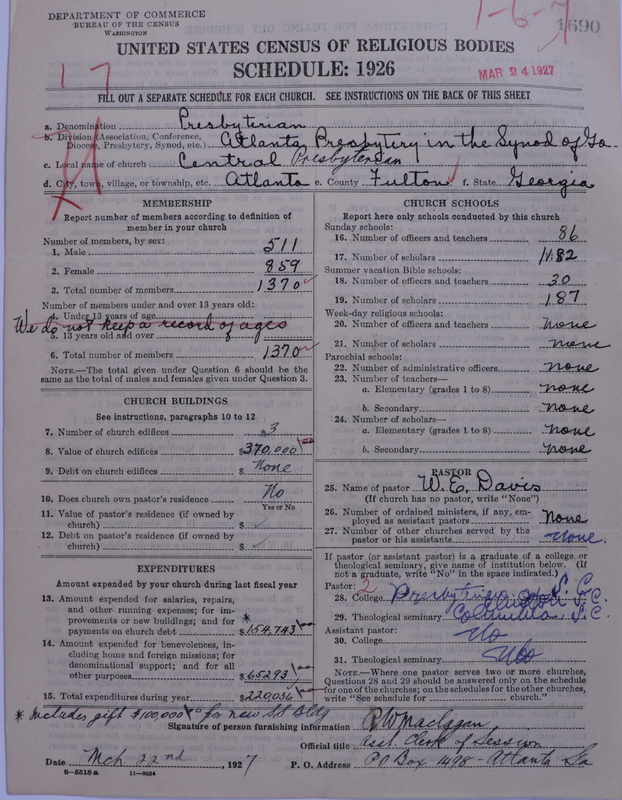 DEPARTMENT OF COMMERCE
BUREAU OF THE CENSUS
WASHINGTON
1-6-7
1690
UNITED STATES CENSUS OF RELIGIOUS BODIES
SCHEDULE: 1926
MAR 24 1927
17
FILL OUT A SEPARATE SCHEDULE FOR EACH CHURCH. SEE INSTRUCTIONS ON THE BACK OF THIS SHEET
a. Denomination Presbyterian
b. Division (Association, Conference, Diocese, Presbytery, Synod, etc.) Atlanta Presbytery in the Synod of Ga.
c. Local name of church Central Presbyterian
d. City, town, village, or township, etc. Atlanta e. County Fulton f. State Georgia
MEMBERSHIP
Report number of members according to definition of
member in your church
Number of members, by sex:
1. Male 511
2. Female 859
3. Total number of members 1370
Number of members under and over 13 years old:
4. Under 13 years of age
We do not keep a record of ages
5. 13 years old and over
6. Total number of members 1370
NOTE.—The total given under Question 6 should be the
same as the total of males and females given under Question 3.
CHURCH BUILDINGS
See instructions, paragraphs 10 to 12
7. Number of church edifices 3
8. Value of church edifices $370,000
9. Debt on church edifices $ None
10. Does church own pastor's residence No
Yes or No
11. Value of pastor's residence (if owned by
church) $
12. Debt on pastor's residence (if owned by
church) $
EXPENDITURES
Amount expended by your church during last fiscal year
13. Amount expended for salaries, repairs,
and other running expenses; for im-
provements or new buildings; and for
payments on church debt * $154,743
14. Amount expended for benevolences, in-
cluding home and foreign missions; for
denominational support; and for all
other purposes $65293
15. Total expenditures during year $220,036
* Includes gift $100,000 for new SS Bldg
CHURCH SCHOOLS
Report here only schools conducted by this church
Sunday schools:
16. Number of officers and teachers 86
17. Number of scholars 1182
Summer vacation Bible schools:
18. Number of officers and teachers 30
19. Number of scholars 187
Week-day religious schools:
20. Number of officers and teachers none
21. Number of scholars none
Parochial schools:
22. Number of administrative officers none
23. Number of teachers—
a. Elementary (grades 1 to 8) none
b. Secondary none
24. Number of scholars—
a. Elementary (grades 1 to 8) none
b. Secondary none
PASTOR
25. Name of pastor W. E. Davis
(If church has no pastor, write "None")
26. Number of ordained ministers, if any, em-
ployed as assistant pastors None
27. Number of other churches served by the
pastor or his assistants none.
If pastor (or assistant pastor) is a graduate of a college or
theological seminary, give name of institution below. (If
not a graduate, write "No" in the space indicated.)
Pastor: 2
28. College Presbyterian S. C.
Clinton S.C.
29. Theological seminary Columbia S.C.
Assistant pastor:
30. College No
31. Theological seminary No
NOTE.—Where one pastor serves two or more churches,
Questions 28 and 29 should be answered only on the schedule
for one of the churches; on the schedules for the other churches,
write "See schedule for church."
Signature of person furnishing information
Official title asst. Clerk of Session
Date Mch 22nd, 1927 P. O. Address PO Box 1498 - Atlanta Ga
8-5518 a 11-9054